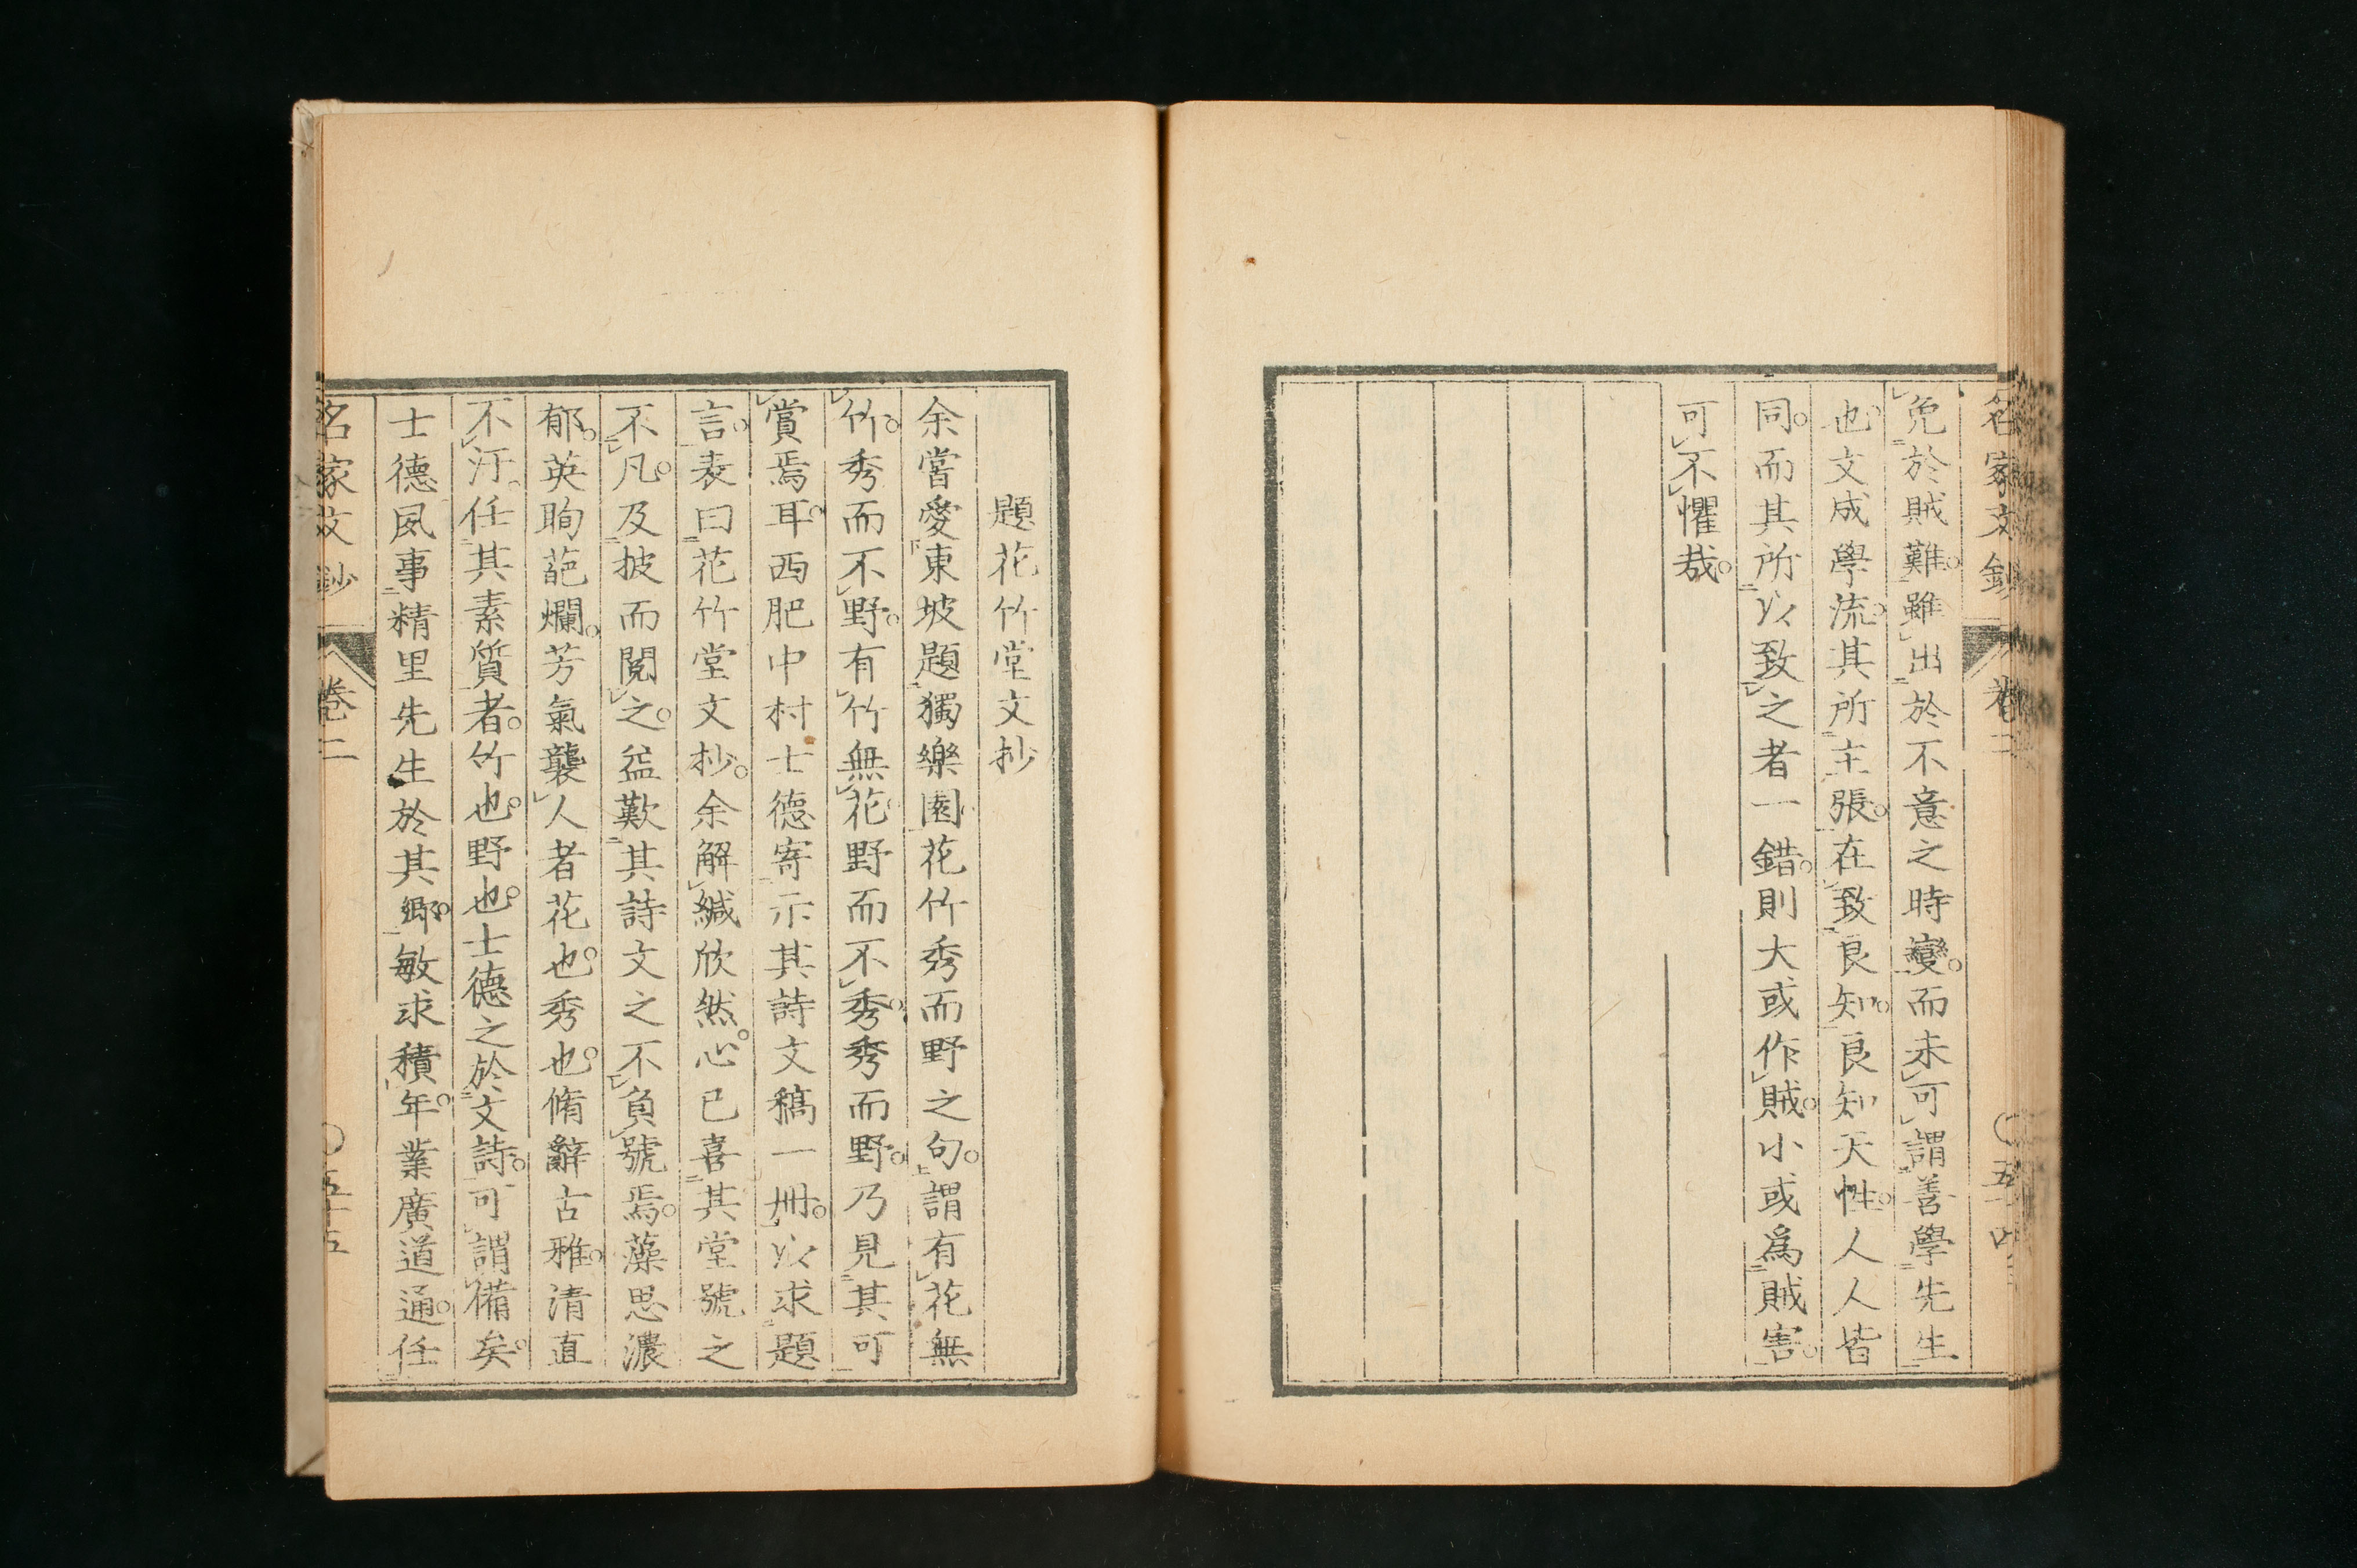 名家文鈔 卷二 〇五十四
免於賊難。雖出於不意之時變。而未可謂善學先生
也。文成學流。其所主張。在致良知。良知天性。人人皆
同。而其所以致之者一錯。則大或作賊。小或爲賊害。
可不懼哉。
題花竹堂文抄
余嘗愛東坡題獨樂園。花竹秀而野之句。謂有花無
竹。秀而不野。有竹無花。野而不秀。秀而野。乃見其可
賞焉耳。西肥中村士德寄示其詩文稿一冊。以求題
言。表曰花竹堂文抄。余解緘欣然。心已喜其堂號之
不凡。及披而閲之。益歎其詩文之不負號焉。藻思濃
郁。英眴葩爛。芳氣襲人者花也。秀也。脩辭古雅。清直
不汙。任其素質者。竹也。野也。士德之於文詩。可謂備矣。
士德夙事精里先生於其鄉。敏求積年。業廣道通。任
名家文鈔 卷二 〇五十五